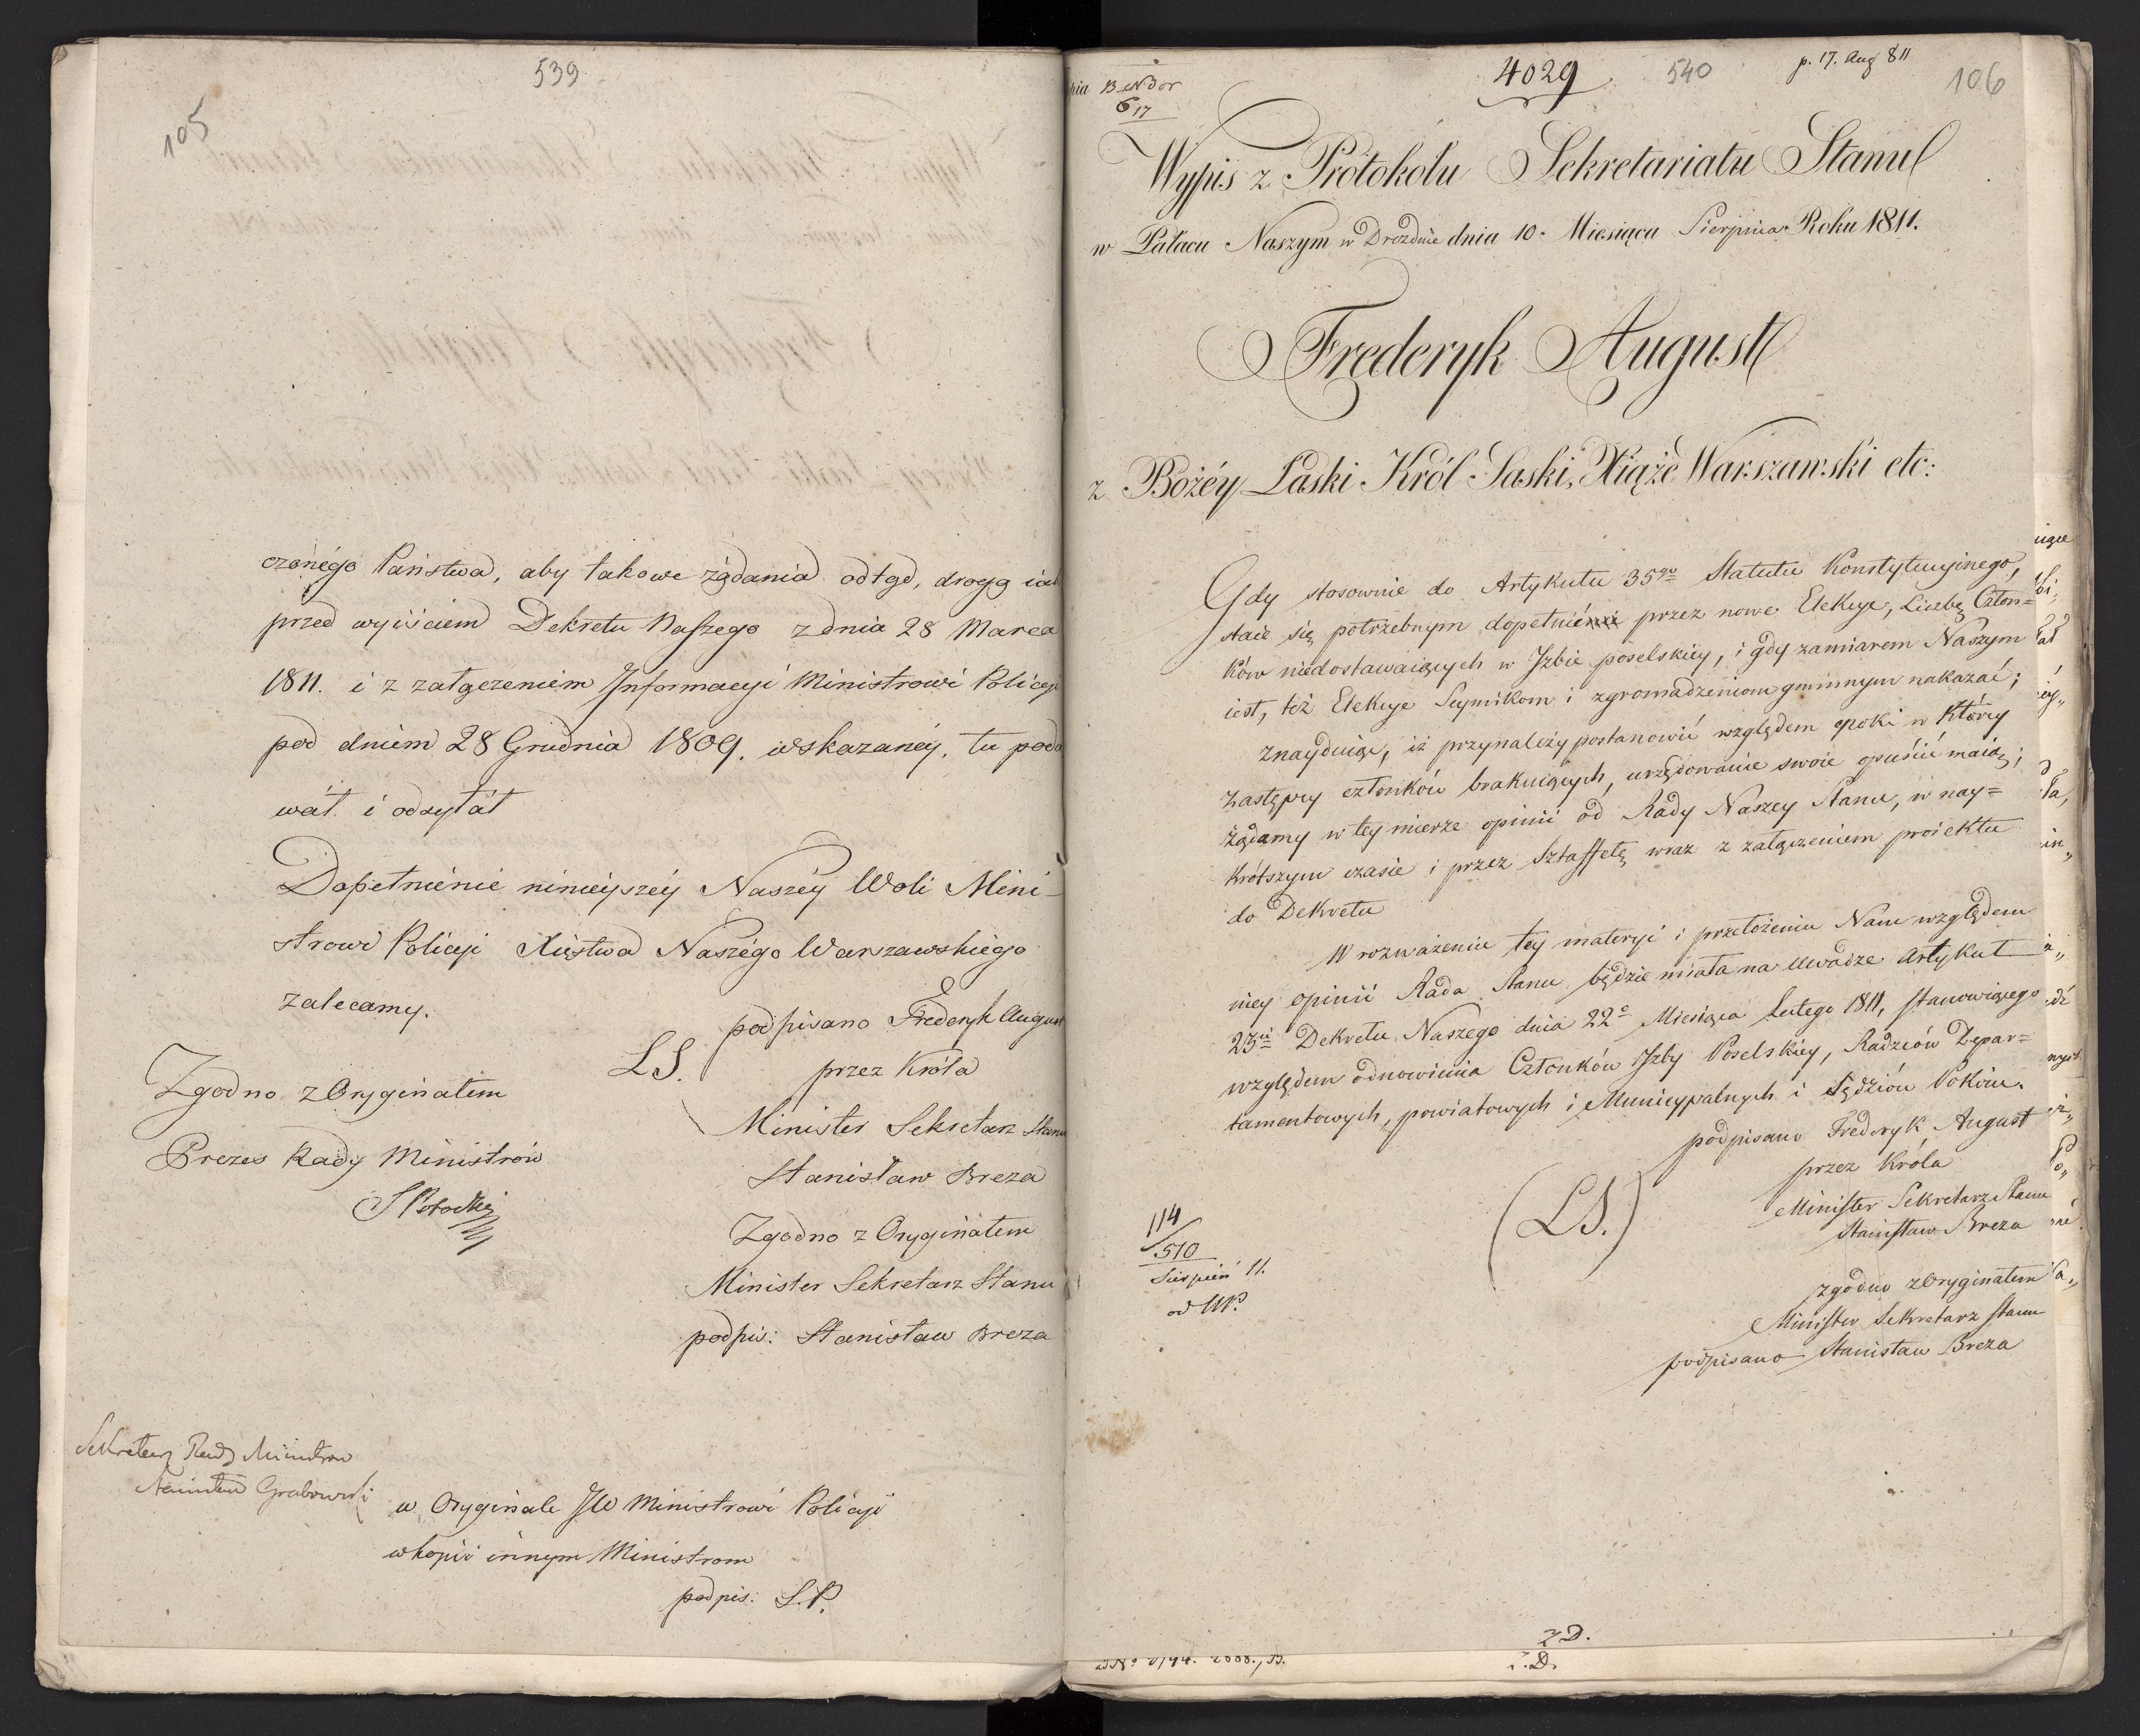 539
105
czonégo Państwa, aby takowe żądania odtąd, drogą iak
przed wyiściem Dekretu Naszego z dnia 28 Marca
1811. i z załączeniem Informacyi Ministrowi Policyi
pod dniem 28 Grudnia 1809. wskazanéy, tu poda
wał i odsyłał
Dopełnienie ninieyszéy Naszéy Woli Mini-
strowi Policyi Xięstwa Naszégo Warszawskiégo
zalecamy.
podpisano Frederyk August
LS.
przez Króla
Zgodno z Oryginałem
Minister Sekretarz Stanu
Prezes Rady Ministrów
Stanisław Breza
SPotocki
Zgodno z Oryginałem
Minister Sekretarz Stanu
podpis: Stanisław Breza
Sekretarz Rady Ministrów
Stanisław Grabowski
w Oryginale JW Ministrowi Policyi
w kopii innym Ministrom
podpis: S.P.
4029
540
p. 17. Aug 811
106
6 17
Wypis z Protokołu Sekretariatu Stanu
w Pałacu Naszym w Dreznie dnia 10. Miesiąca Sierpnia Roku 1811.
Frederyk August
z Bożéy Łaski Król Saski, Xiąże Warszawski etc:
Gdy stosownie do Artykułu 35go Statutu Konstytucyinego,
staie się potrzebnym dopełnić przez nowe Elekcye, Liczbę Człon=
ków niedostawaiących w Izbie poselskiéy, i gdy zamiarem Naszym
iest, też Elekcye Seymikom i zgromadzeniom gminnym nakazać;
znayduiąc, iż przynależy postanowić względem epoki w któréy
zastępcy członków brakuiących, urzędowanie swoie opuścić maią;
żądamy w tey mierze opinii od Rady Naszey Stanu, w nay=
krótszym czasie i przez Sztaffetę wraz z załączeniem proiektu
do Dekretu
W rozważeniu tey materyi i przełożeniu Nam względem
niey opinii Rada Stanu będzie miała na uwadze Artykuł
23ci Dekretu Naszego dnia 22o Miesiąca Lutego 1811, stanowiącego
względem odnowienia Członków Izby Poselskiéy, Radzców Depar=
tamentowych, powiatowych i Municypalnych i Sędziów Pokoiu.
podpisano Frederyk August
przez Króla
(LS.)
Minister Sekretarz Stanu
Stanisław Breza
114
510
Sierpień 11.
zgodno z Oryginałem
Minister Sekretarz Stanu
podpisano Stanisław Breza
Z D.